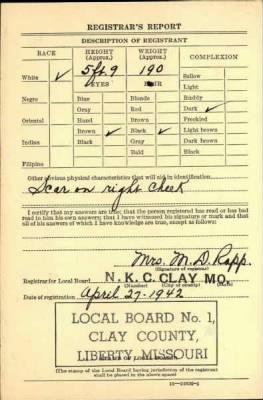 REGISTRAR'S REPORT
DESCRIPTION OF REGISTRANT
RACE HEIGHT (Approx.) WEIGHT (Approx.) COMPLEXION
White ✓ 5 ft. 9 190 Sallow
EYES HAIR Light
Negro Blue Blonde Ruddy
Gray Red Dark ✓
Oriental Hazel Brown Freckled
Brown ✓ Black ✓ Light brown
Indian Black Gray Dark brown
Bald Black
Filipino
Other obvious physical characteristics that will aid in identification
Scar on right cheek
I certify that my answers are true; that the person registered has read or has had
read to him his own answers; that I have witnessed his signature or mark and that
all of his answers of which I have knowledge are true, except as follows:
Mrs. M. D. Rapp.
(Signature of registrar)
Registrar for Local Board N. K. C. CLAY MO.
(Number) (City or county) (State)
Date of registration April 27-1942
LOCAL BOARD No. 1,
CLAY COUNTY,
LIBERTY, MISSOURI
(The stamp of the Local Board having jurisdiction of the registrant
shall be placed in the above space)